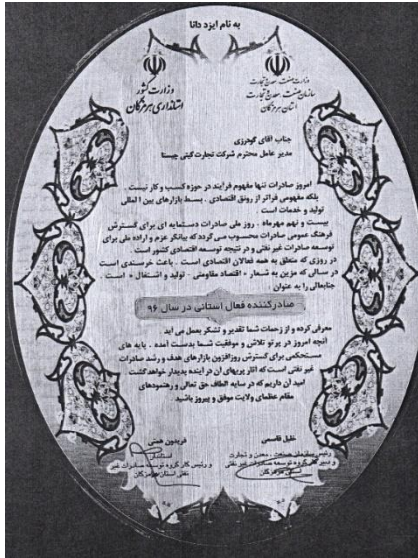 به نام ایزد دانا
وزارت صنعت، معدن و تجارت
سازمان صنعت، معدن و تجارت
استان هرمزگان
وزارت کشور
استانداری هرمزگان
جناب آقای گودرزی
مدیر عامل محترم شرکت تجارت گیتی چیستا
امروز صادرات تنها مفهوم فرآیند در حوزه کسب و کار نیست .
بلکه مفهومی فراتر از رونق اقتصادی ، بسط بازارهای بین المللی
تولید و خدمات است .
بیست و نهم مهرماه ، روز ملی صادرات دستمایه ای برای گسترش
فرهنگ عمومی صادرات محسوب می گردد که بیانگر عزم و اراده ملی برای
توسعه صادرات غیر نفتی و در نتیجه توسعه اقتصادی کشور است .
در روزی که متعلق به همه فعالان اقتصادی است ، باعث خرسندی است
در سالی که مزین به شعار « اقتصاد مقاومتی - تولید و اشتغال » است
جنابعالی را به عنوان :
صادرکننده فعال استانی در سال ۹۶
معرفی کرده و از زحمات شما تقدیر و تشکر بعمل می آید
آنچه امروز در پرتو تلاش و موفقیت شما بدست آمده ، پایه های
مستحکمی برای گسترش روزافزون بازارهای هدف و رشد صادرات
غیر نفتی است که آثار پربهای آن در آینده پدیدار خواهد گشت
امید آن داریم که در سایه الطاف حق تعالی و رهنمودهای
مقام عظمای ولایت موفق و پیروز باشید
خلیل قاسمی
رئیس سازمان صنعت ، معدن و تجارت
و دبیر کار گروه توسعه صادرات غیر نفتی
استان هرمزگان
فریدون همتی
استاندار
و رئیس کار گروه توسعه صادرات غیر
نفتی استان هرمزگان